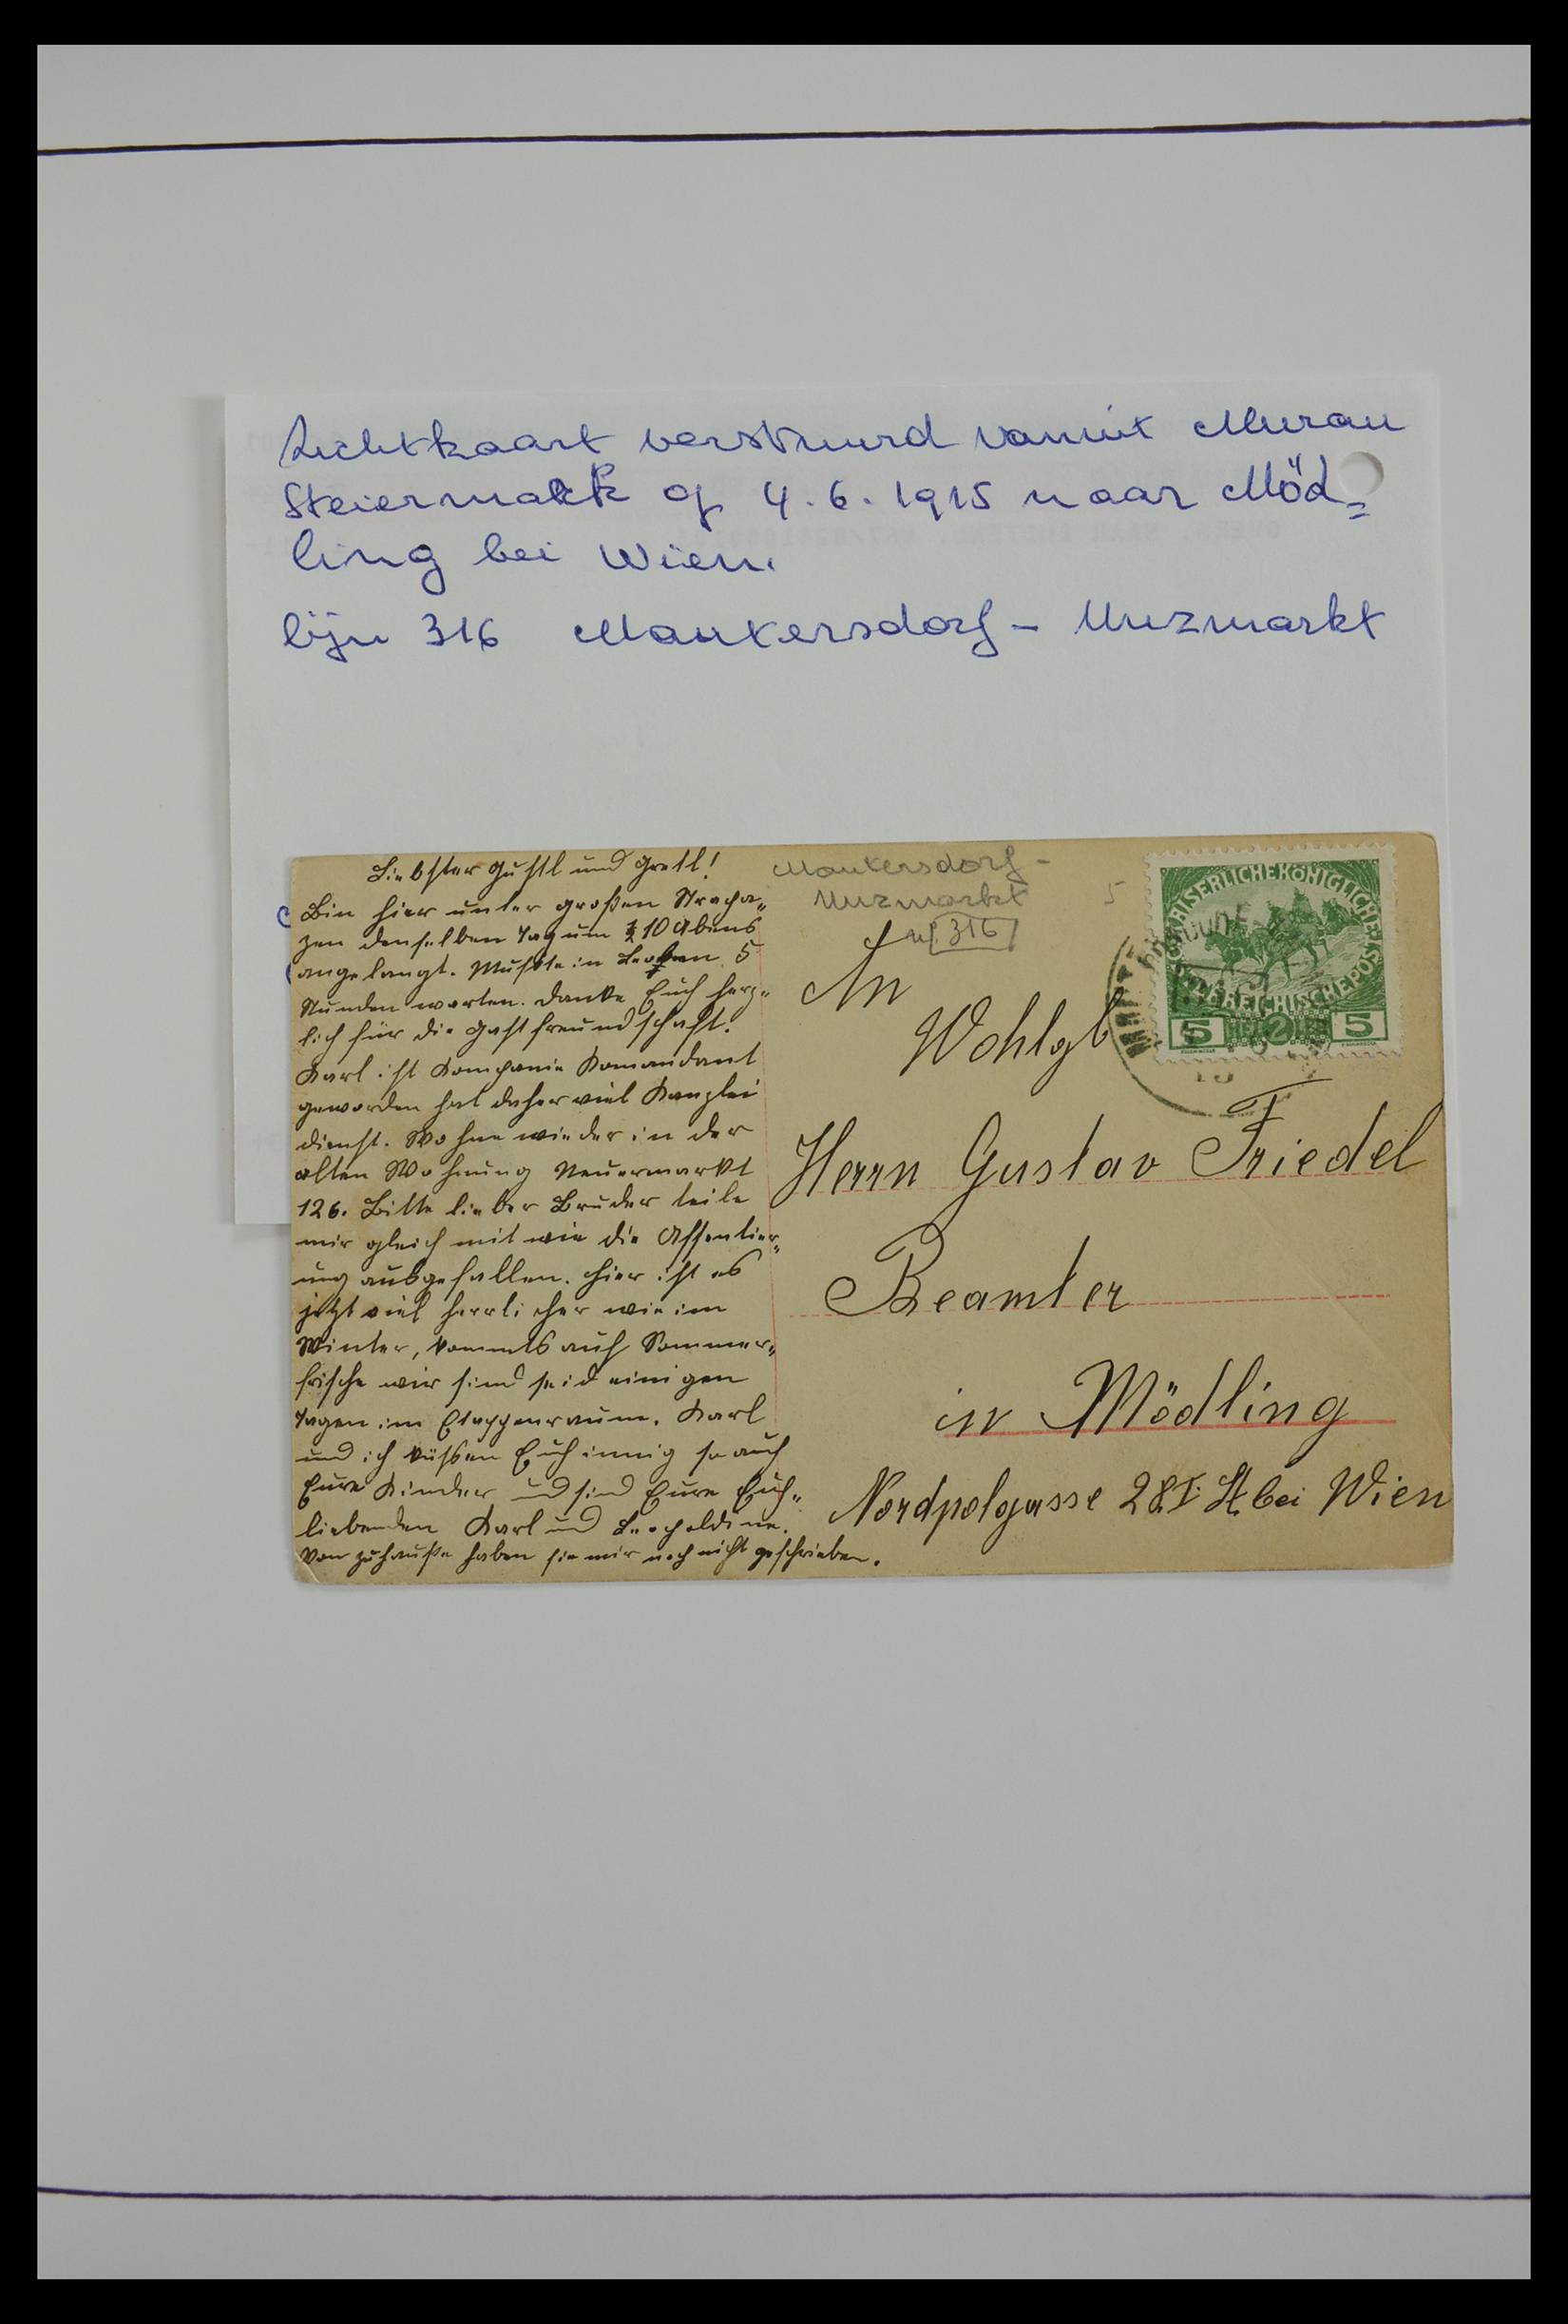 Zichtkaart verstuurd vanuit Murau
Steiermark op 4.6.1915 naar Möd=
ling bei Wien.
lijn 316 Mautersdorf - Unzmarkt
Liebster Gustl und Gretl!
Bin hier unter großen Strapa„
zen denselben Tag um ½ 10 Abens
angelangt. Mußte in Leoben 5
Stunden warten. Danke Euch herz„
lich für die Gastfreundschaft.
Karl ist Kompanie Komandant
geworden hat daher viel Kanzlei
dienst. Wohne wieder in der
alten Wohnung Neuermarkt
126. Bitte lieber Bruder teile
mir gleich mit wie die Assentier„
ung ausgefallen. Hier ist es
jetzt viel herrlicher wie im
Winter, kommts auf Sommer„
frische wir sind seid einigen
Tagen im Etappenraum. Karl
und ich küssen Euch innig so auch
Eure Kinder und sind Eure Euch„
liebenden Karl und Leopoldine.
Von zuhauße haben sie mir noch nicht geschrieben.
Mautersdorf -
Unzmarkt
316
5
KAISERLICHE KÖNIGLICHE
ÖSTERREICHISCHE POST
5 2 5
An
Wohlgb
Herrn Gustav Friedel
Beamter
in Mödling
Nordpolgasse 28 I. St. bei Wien